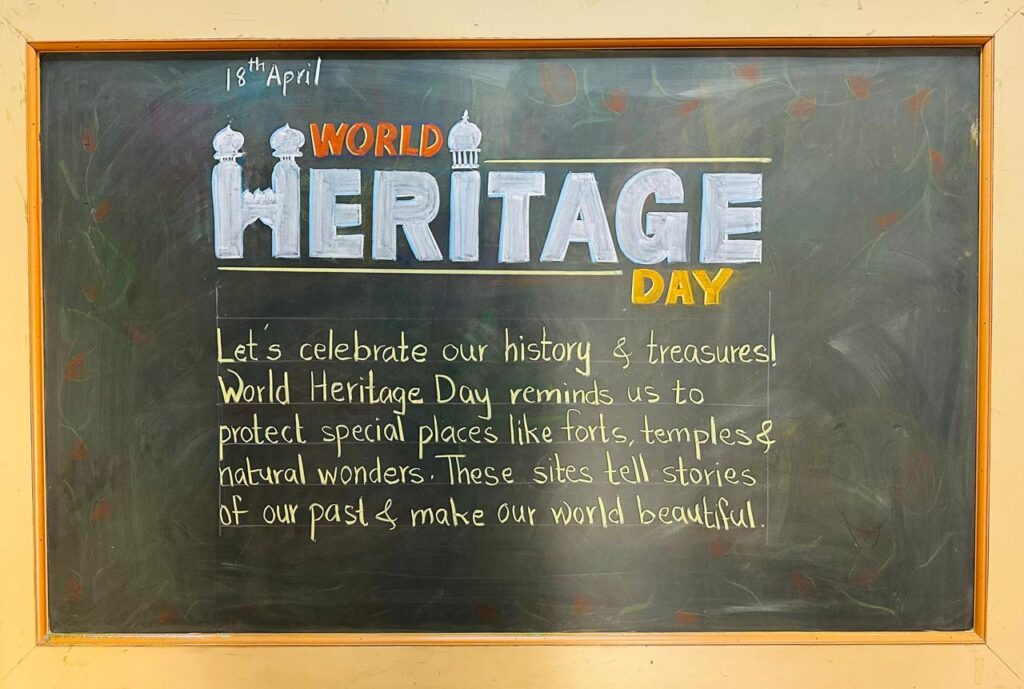 18th April
WORLD
HERITAGE
DAY
Let's celebrate our history & treasures!
World Heritage Day reminds us to
protect special places like forts, temples &
natural wonders. These sites tell stories
of our past & make our world beautiful.